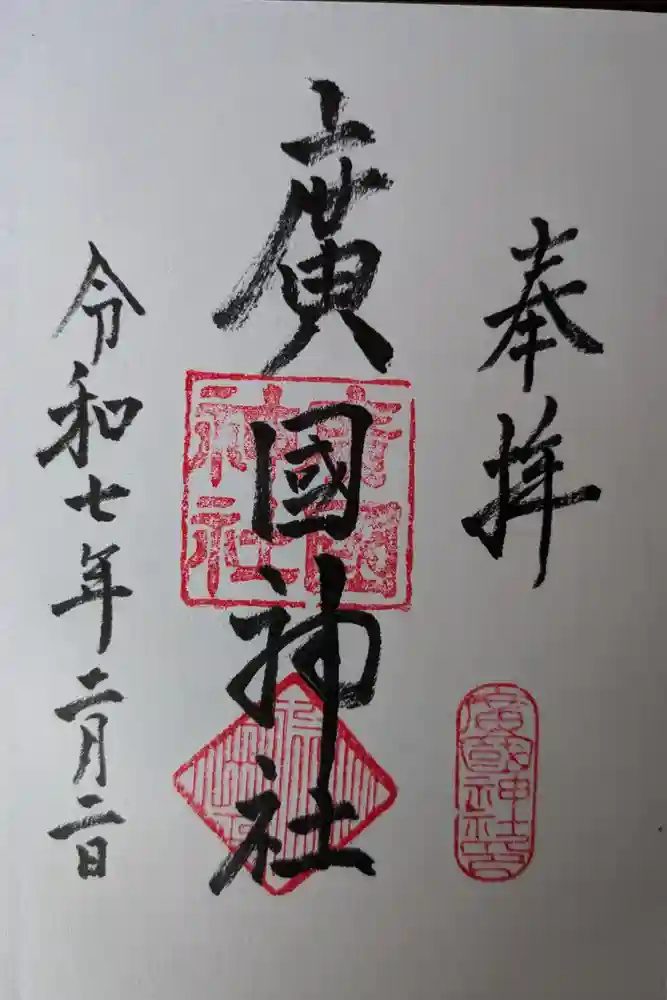 奉拝
廣國神社
令和七年二月二日
廣國神社
廣國神社